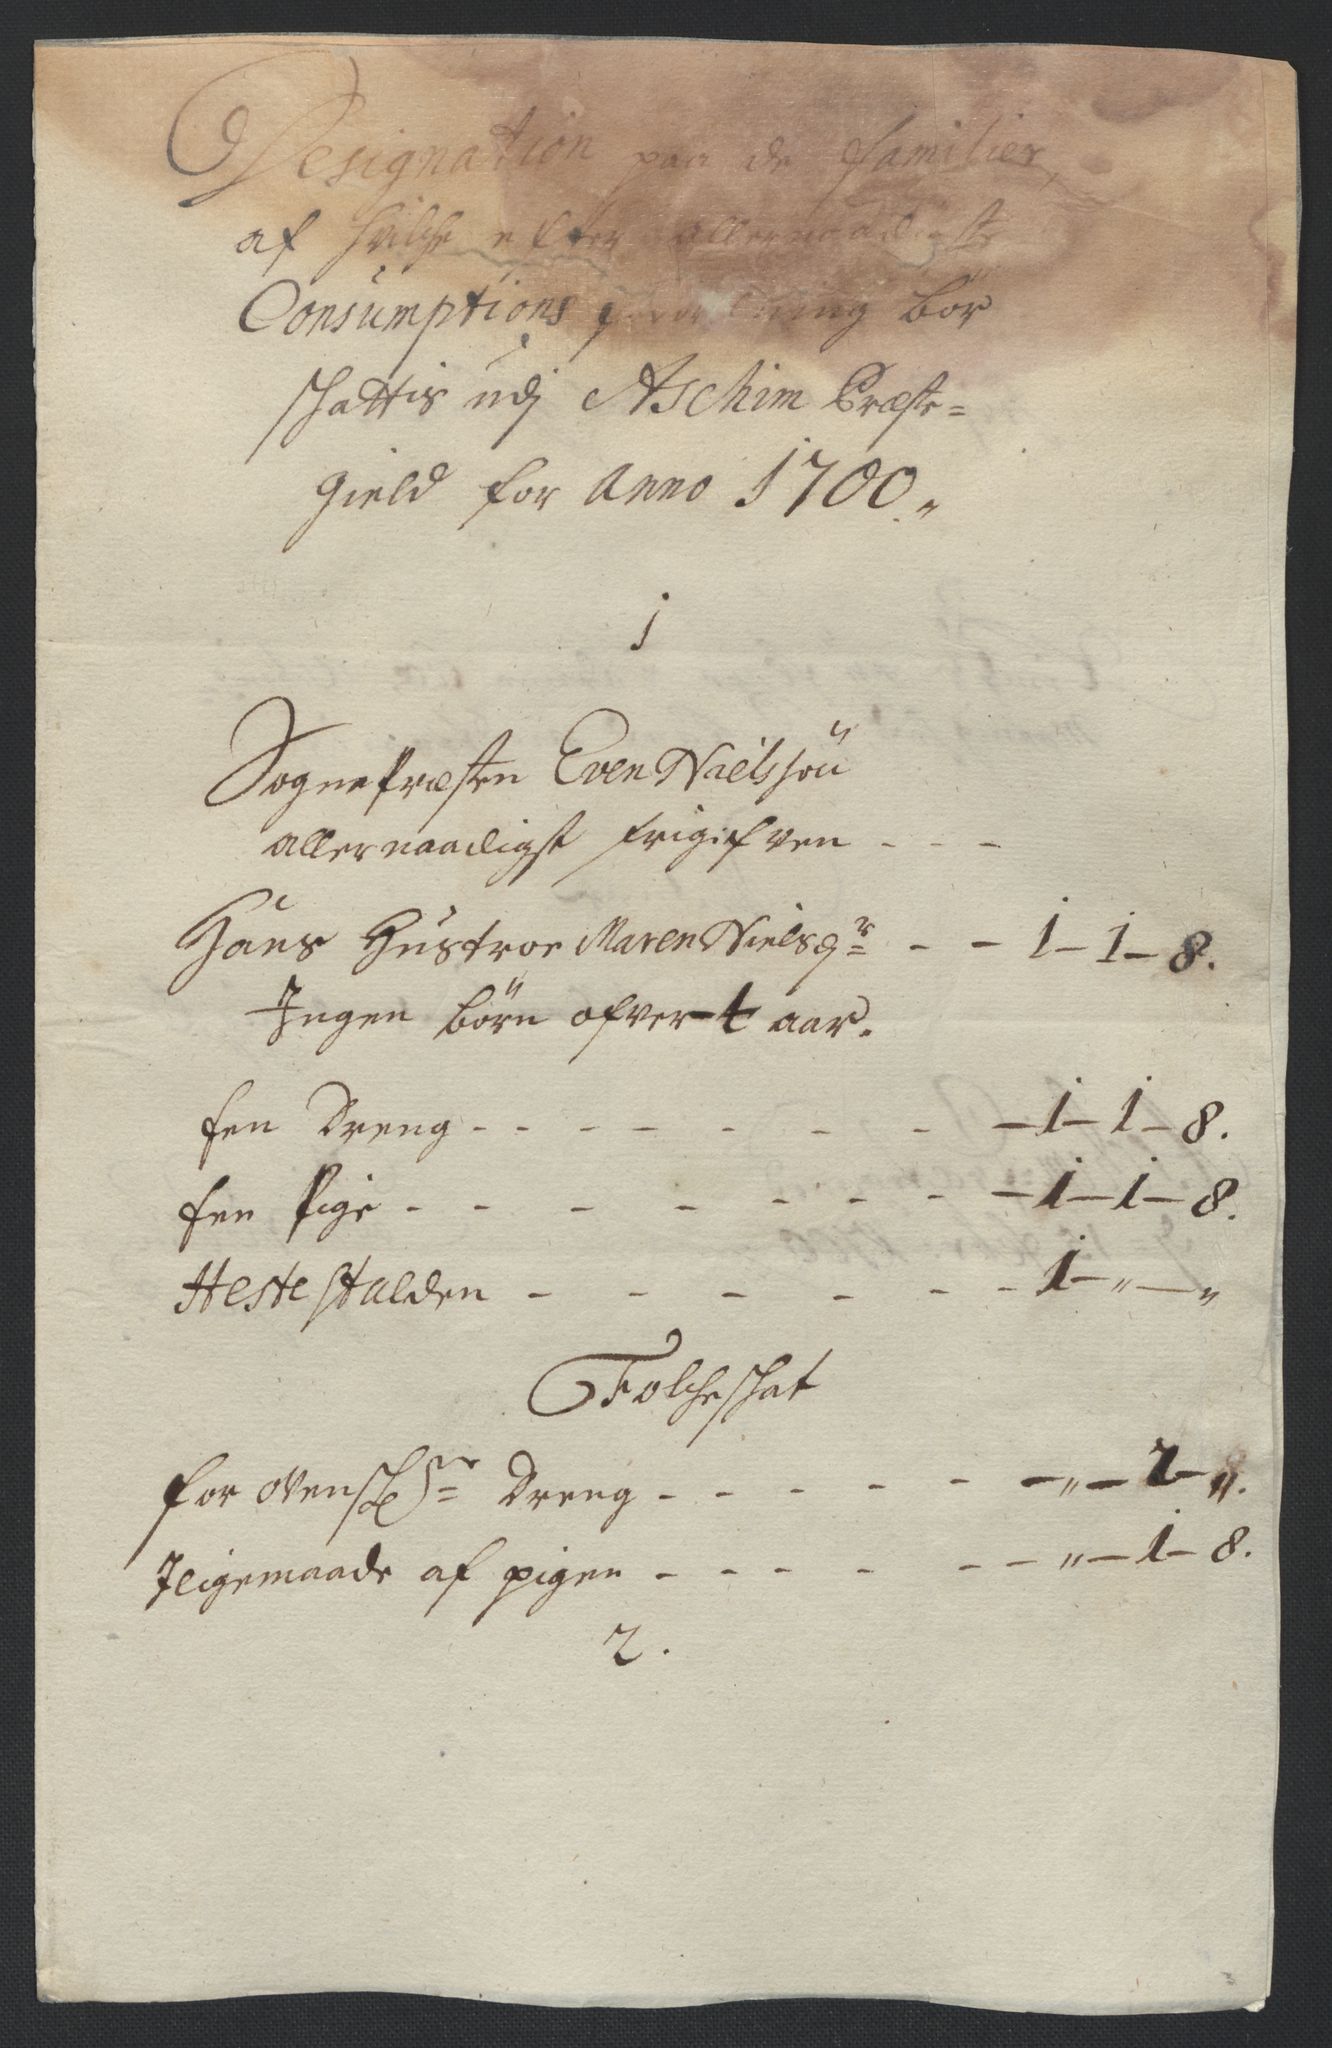 Designation paa de Familier,
af hvilche efter allernaadigste
Consumptions forordning bör
schattis udj Aschim Præste-
gield for Anno 1700
1
Sognepræsten Even Nielssön
allernaadigst frigifven - - -
Hans Hustroe Maren Nielsdr - - 1 - 1 - 8.
Ingen börn ofver 4 aar.
Een Dreng - - - - - - - 1 - 1 - 8.
Een Pige - - - - - - - 1 - 1 - 8.
Heste stalden - - - - - - 1 - " - "
Folcheschat
for ovenschr Dreng - - - - - " - 2 - ".
Iligemaade af pigen - - - - - " - 1 - 8.
2.